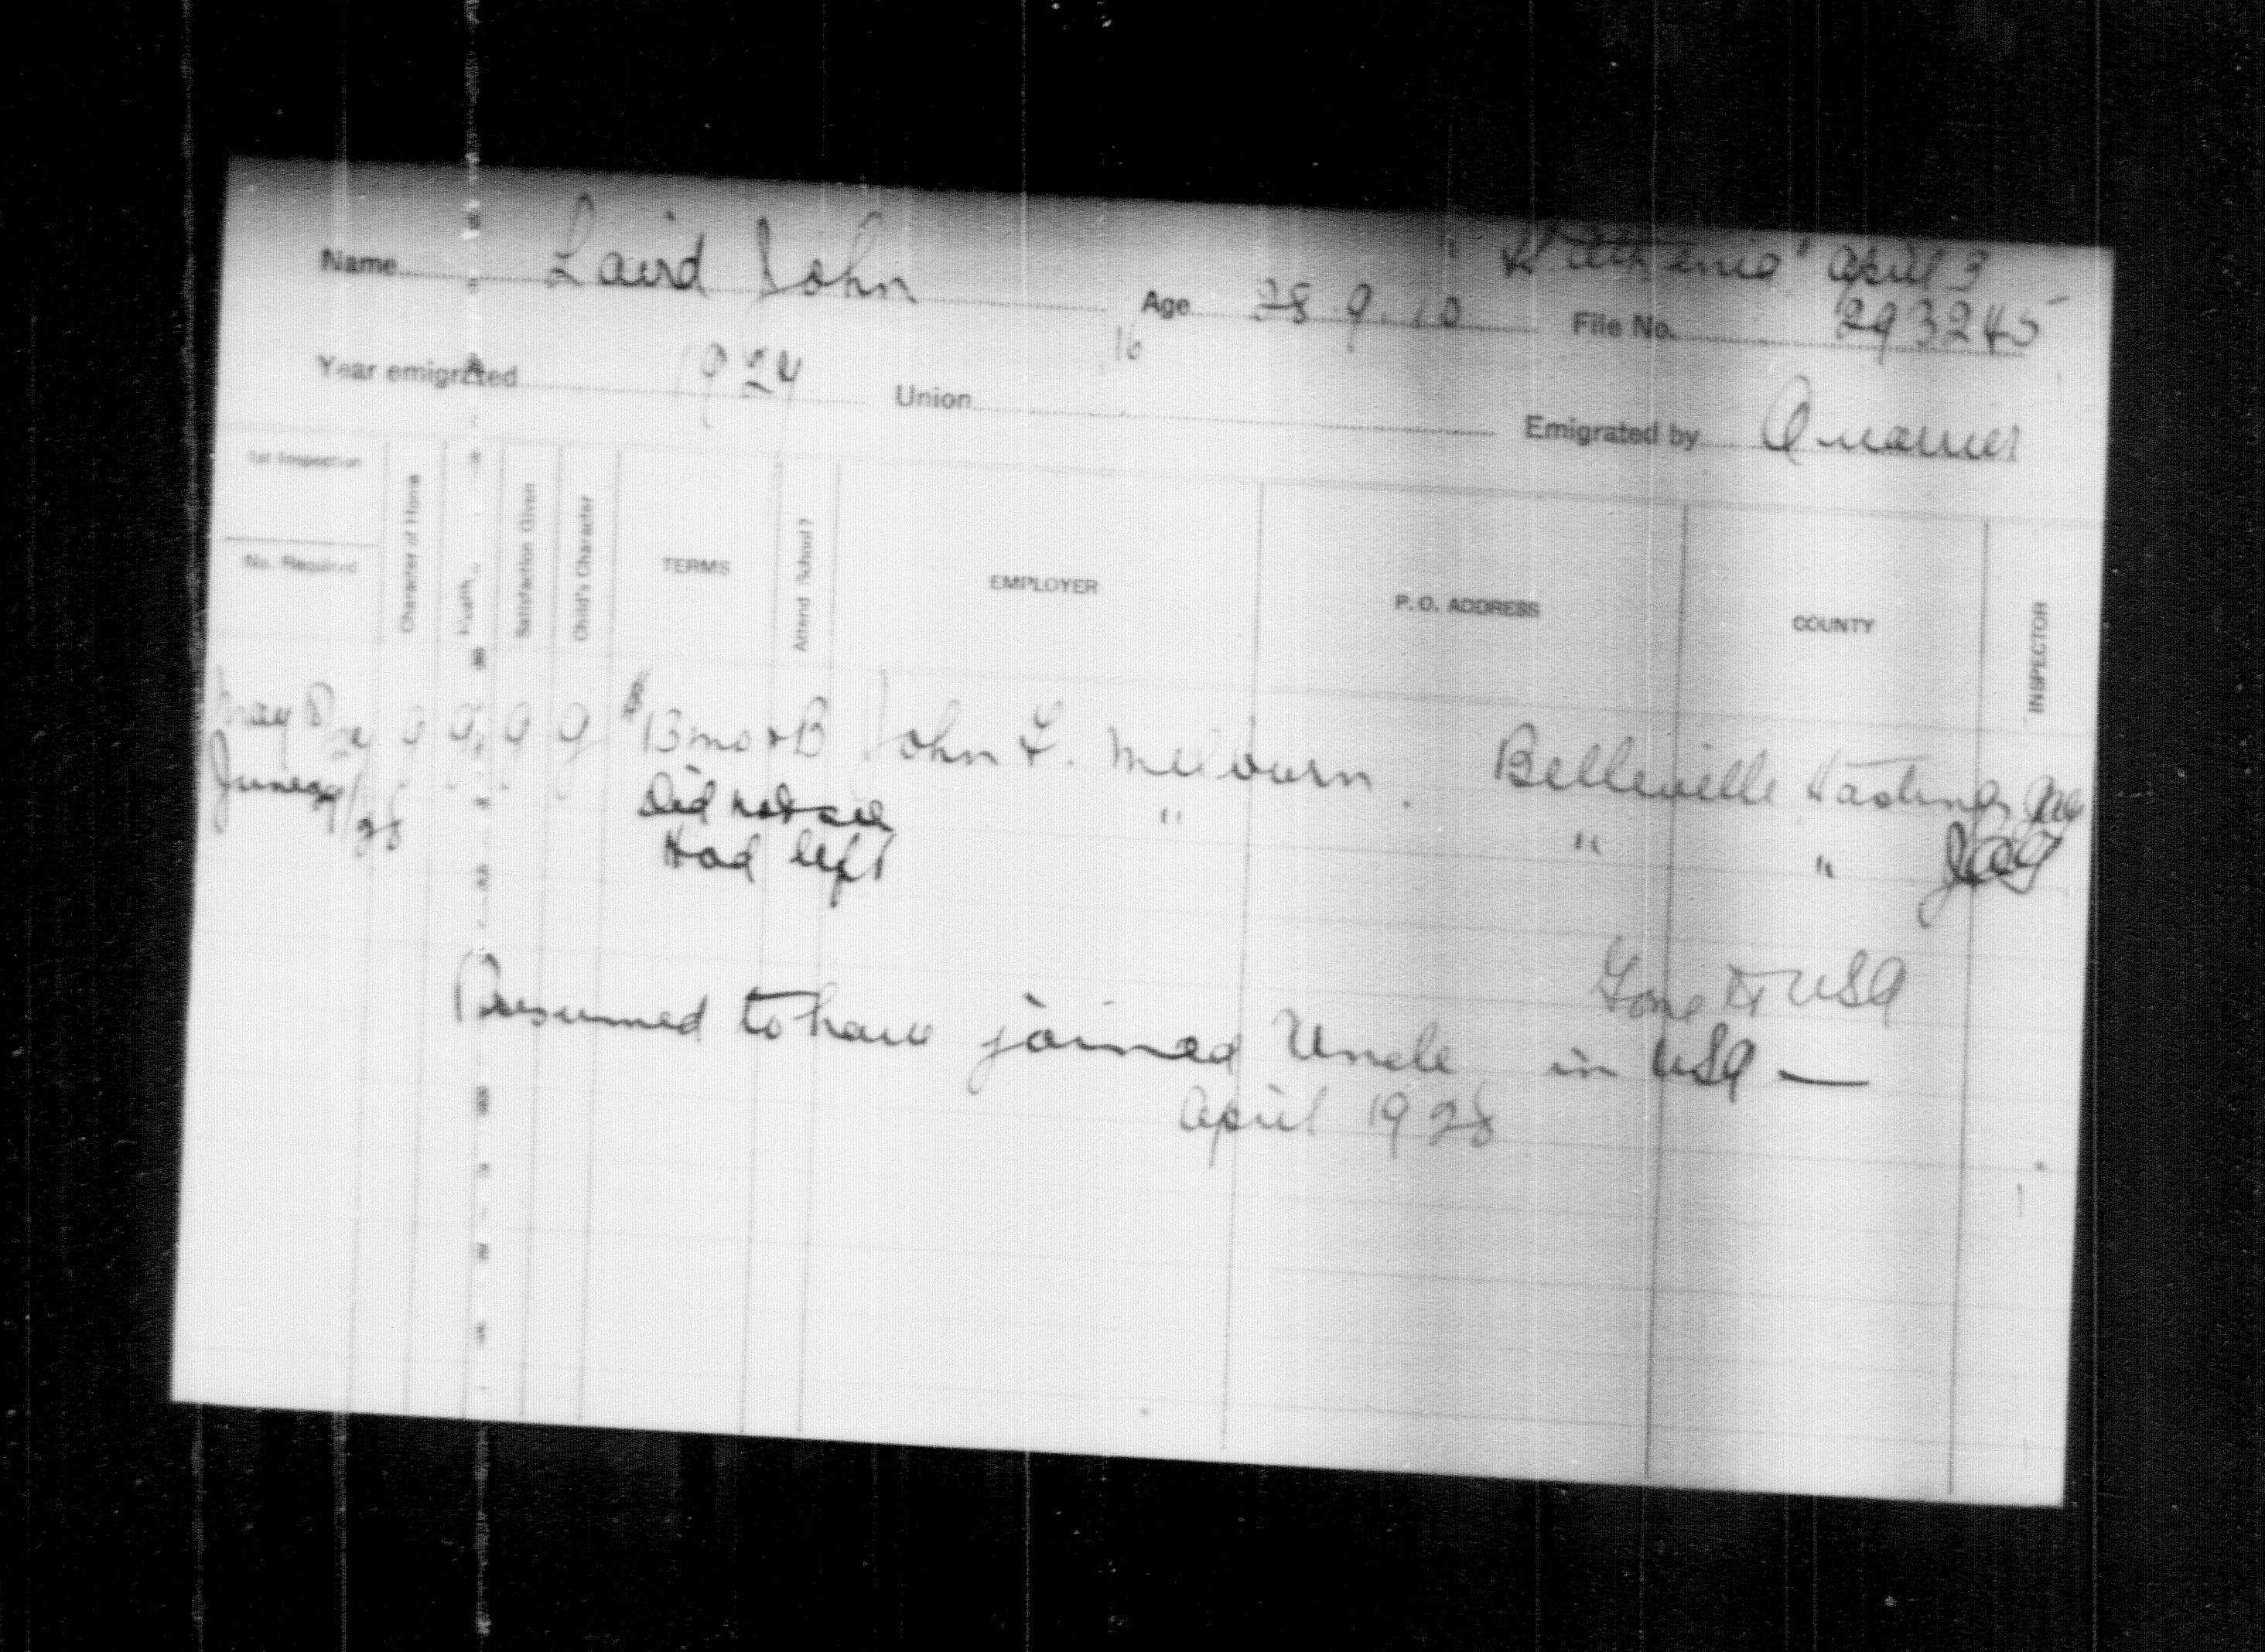 "Letitia" April 3
Name Laird John Age 28.9.10 File No. 293245
16
Year emigrated 1924 Union Emigrated by Quarrier
1st Inspection
No. Required
Character of Home
Health
Satisfaction Given
Child's Character
TERMS
Attend School?
EMPLOYER
P.O. ADDRESS
COUNTY
INSPECTOR
May 8 g g g g 13 mo + B John F. Melburn. Belleville Hastings
June 29/28 Did not see " " " JAG
Had left
Gone to USA
Presumed to have joined Uncle in USA —
April 1928